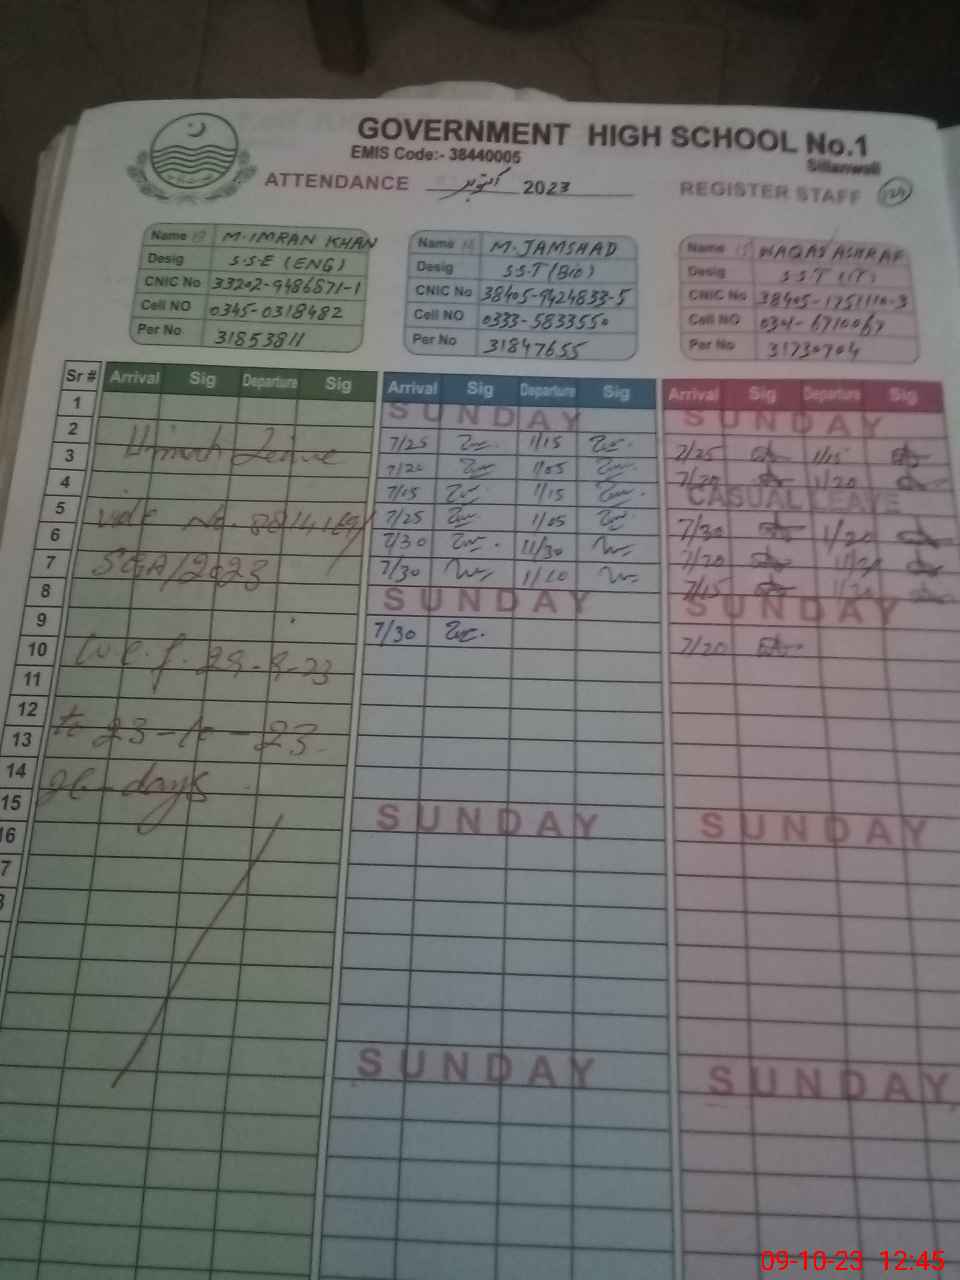 GOVERNMENT HIGH SCHOOL No.1
EMIS Code:- 38440005
Sillanwali
ATTENDANCE اکتوبر 2023 REGISTER STAFF
Name M. IMRAN KHAN
Desig S.S.E (ENG)
CNIC No 33202-9486871-1
Cell NO 0345-0318482
Per No 31853811
Name M. JAMSHAD
Desig S.S.T (Bio)
CNIC No 38405-9424833-5
Cell NO 0333-5833550
Per No 31847655
Name WAQAS ASHRAF
Desig S.S.T (IT)
CNIC No 38405-1751110-3
Cell NO 0301-6710067
Per No 31730704
Sr # Arrival Sig Departure Sig Arrival Sig Departure Sig Arrival Sig Departure Sig
1 SUNDAY SUNDAY
2 7/25 1/15 7/25 1/15
3 7/20 1/05 7/20 1/20
4 7/15 1/15 CASUAL LEAVE
5 7/25 1/05 7/30 1/20
6 7/30 11/30 7/20 1/20
7 7/30 1/10 7/15
8 SUNDAY SUNDAY
9 7/30 7/20
10
11
12
13
14
15 SUNDAY SUNDAY
16
7
SUNDAY SUNDAY
Leave
vide No.
SGA/2023
w.e.f.
to 23-10-23
days
09-10-23 12:45